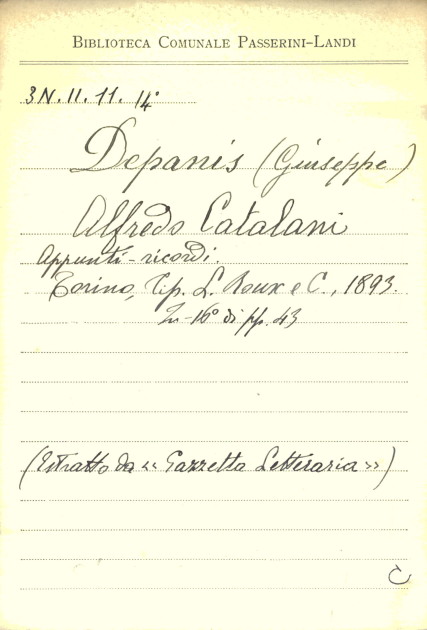 BIBLIOTECA COMUNALE PASSERINI-LANDI
3N.II.11.14°
Depanis (Giuseppe)
Alfredo Catalani
Appunti-ricordi.
Torino, Tip. L. Roux e C., 1893.
In-16° di pp. 43
(Estratto da « Gazzetta Letteraria »)
C